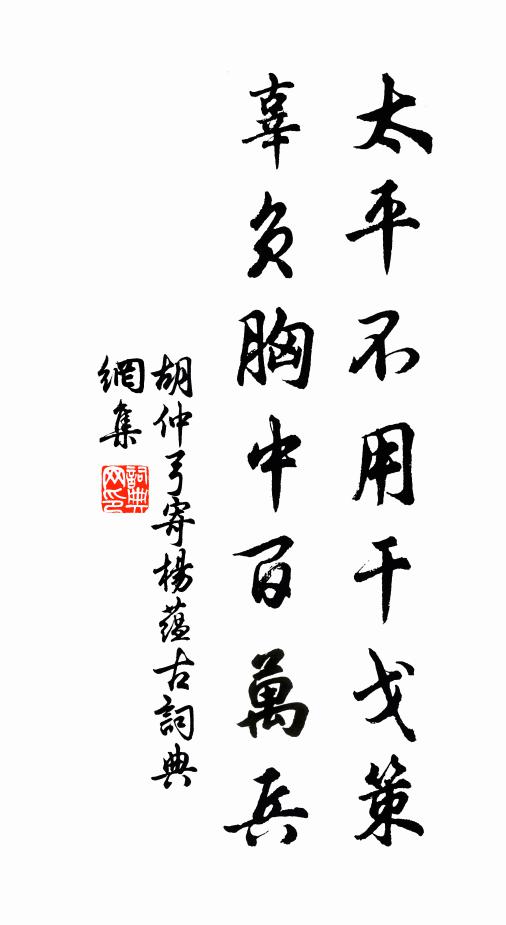 太平不用干戈策
辜負胸中百萬兵
胡仲弓寄楊蘊古詞典
網集
詞典
网印